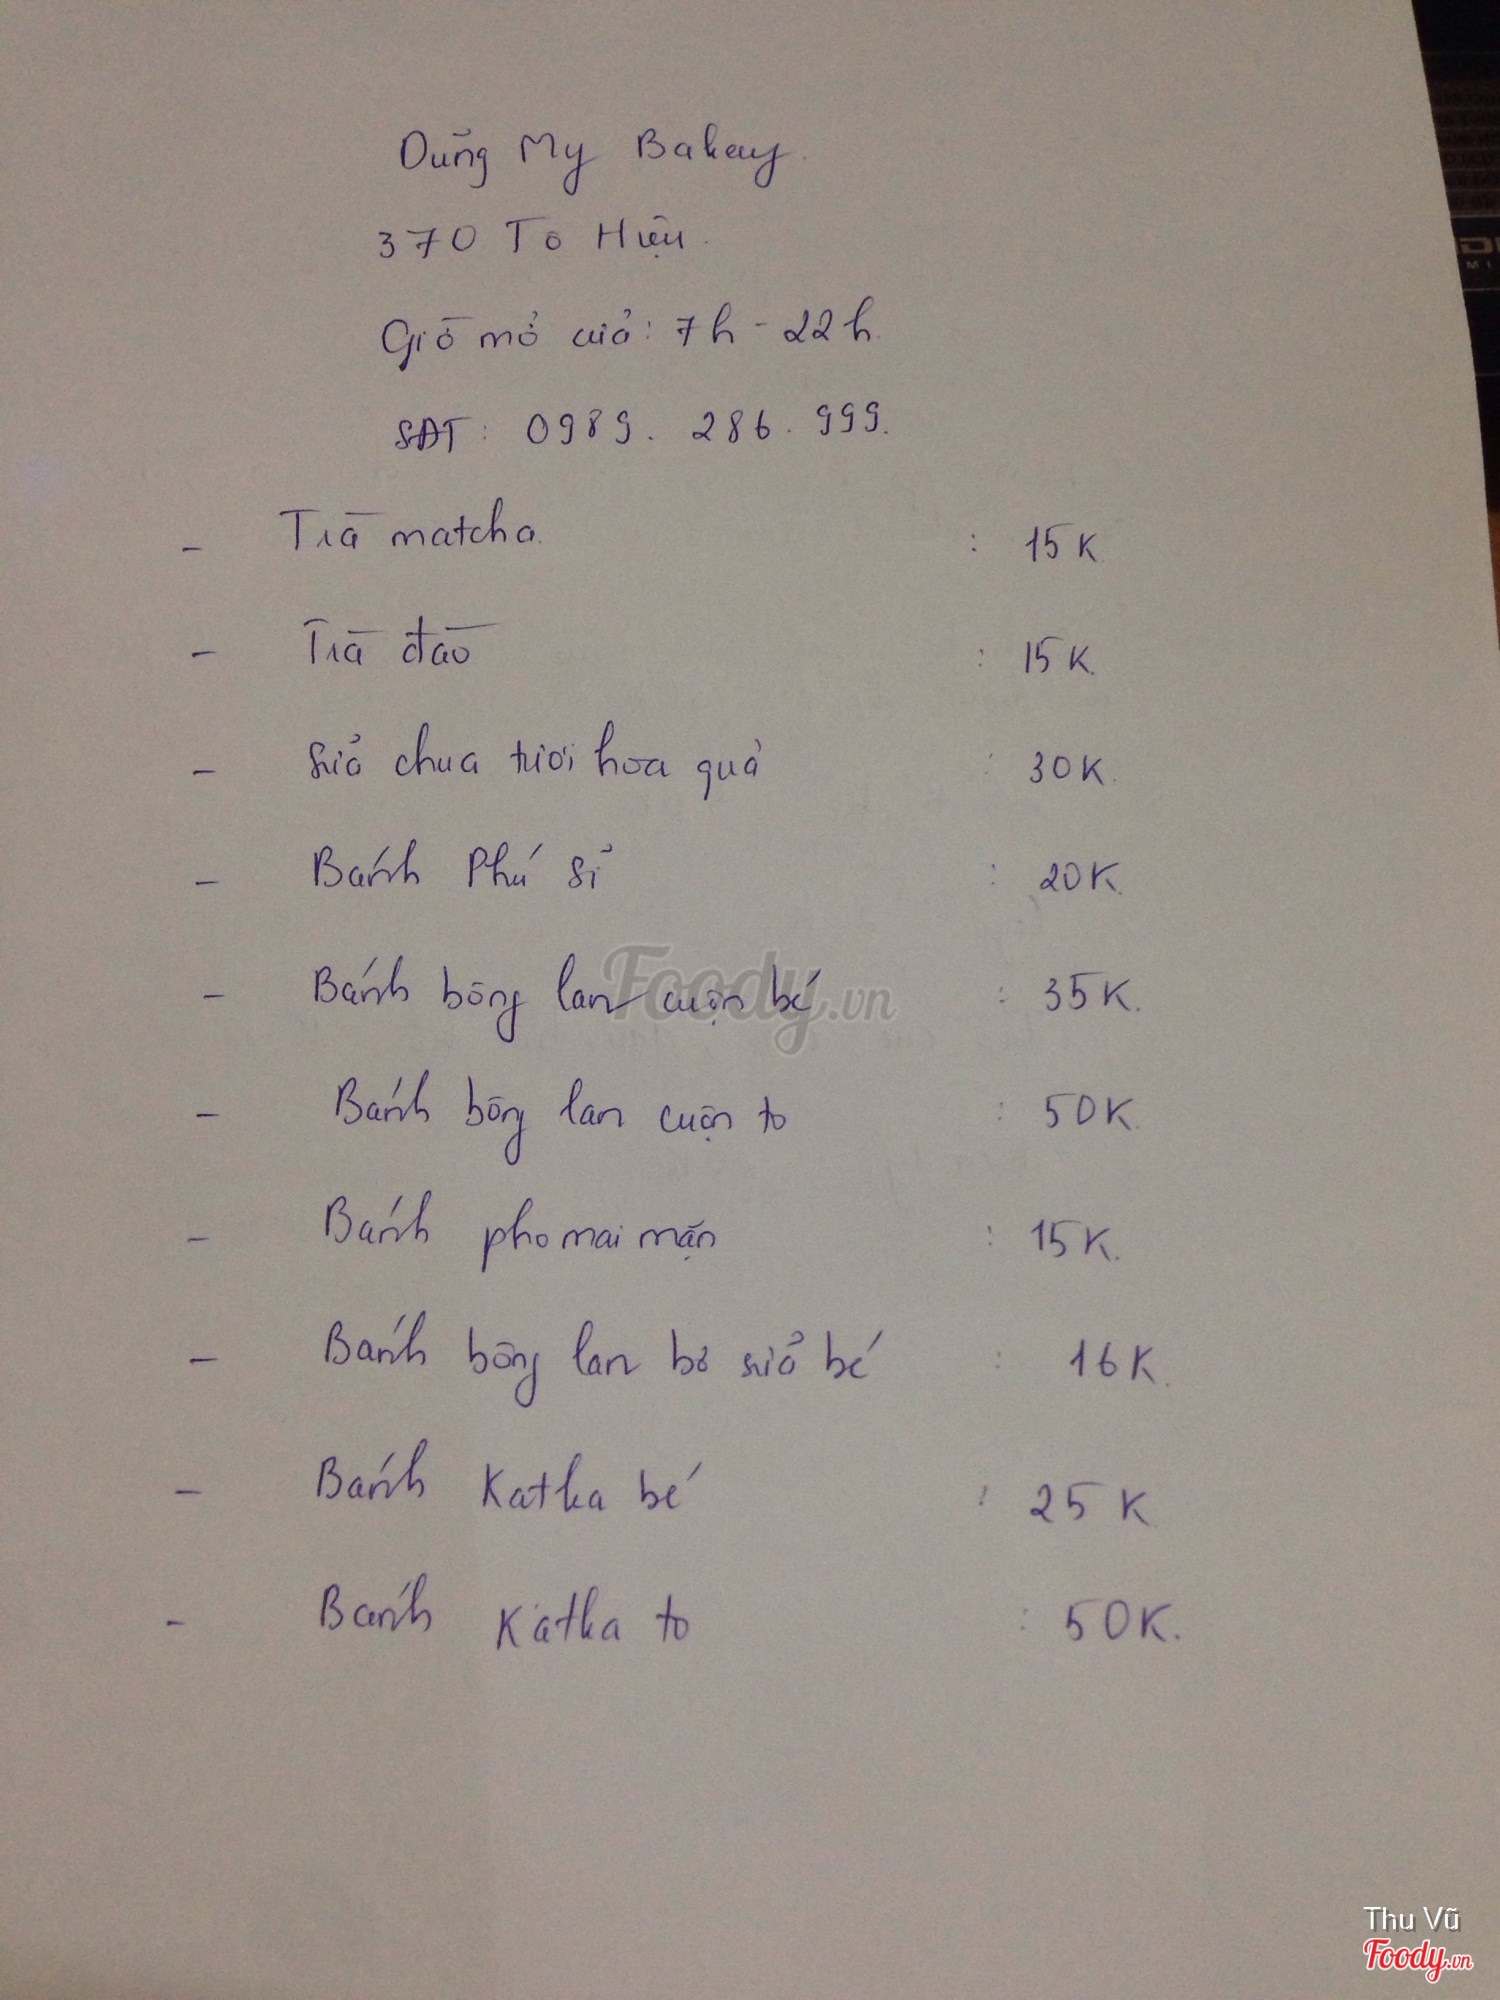 Dũng My Bakery
370 Tô Hiệu
Giờ mở cửa: 7h - 22h
SĐT: 0989. 286. 999.
- Trà matcha : 15K
- Trà đào : 15K.
- Sữa chua tươi hoa quả : 30K
- Bánh Phú Sĩ : 20K
- Bánh bông lan cuộn bé : 35K.
- Bánh bông lan cuộn to : 50K
- Bánh pho mai mặn : 15K.
- Bánh bông lan bơ sữa bé : 16K
- Bánh Katka bé : 25K
- Bánh Katka to : 50K.
Foody.vn
Thu Vũ
Foody.vn